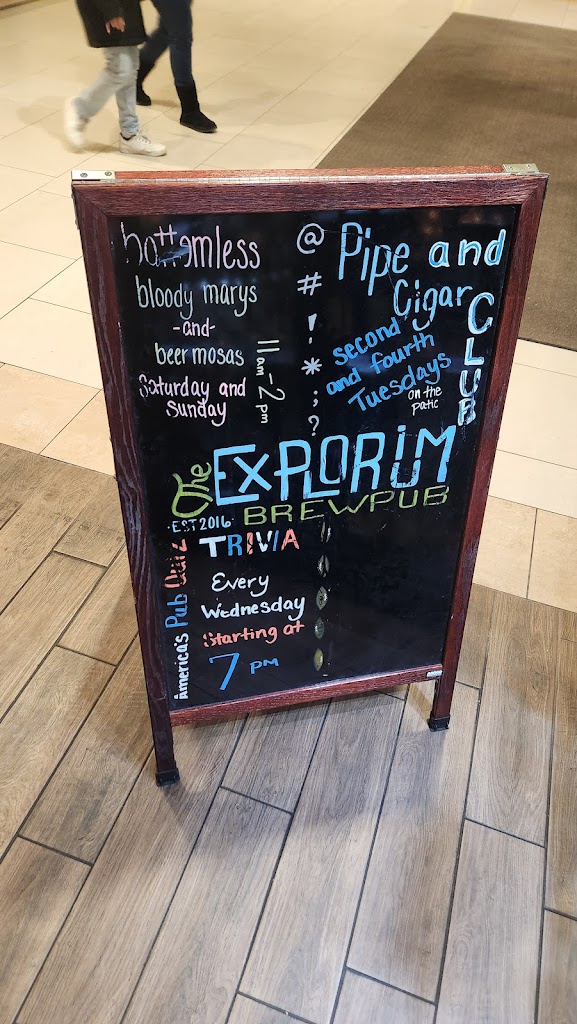 bottemless
bloody marys
-and-
beermosas
Saturday and
Sunday
11am-2pm
@
#
!
*
;
?
Pipe and
Cigar
CLUB
second
and fourth
Tuesdays
on the
patic
the EXPLORIUM
BREWPUB
·EST 2016·
America's Pub Quiz
TRIVIA
Every
Wednesday
Starting at
7 PM